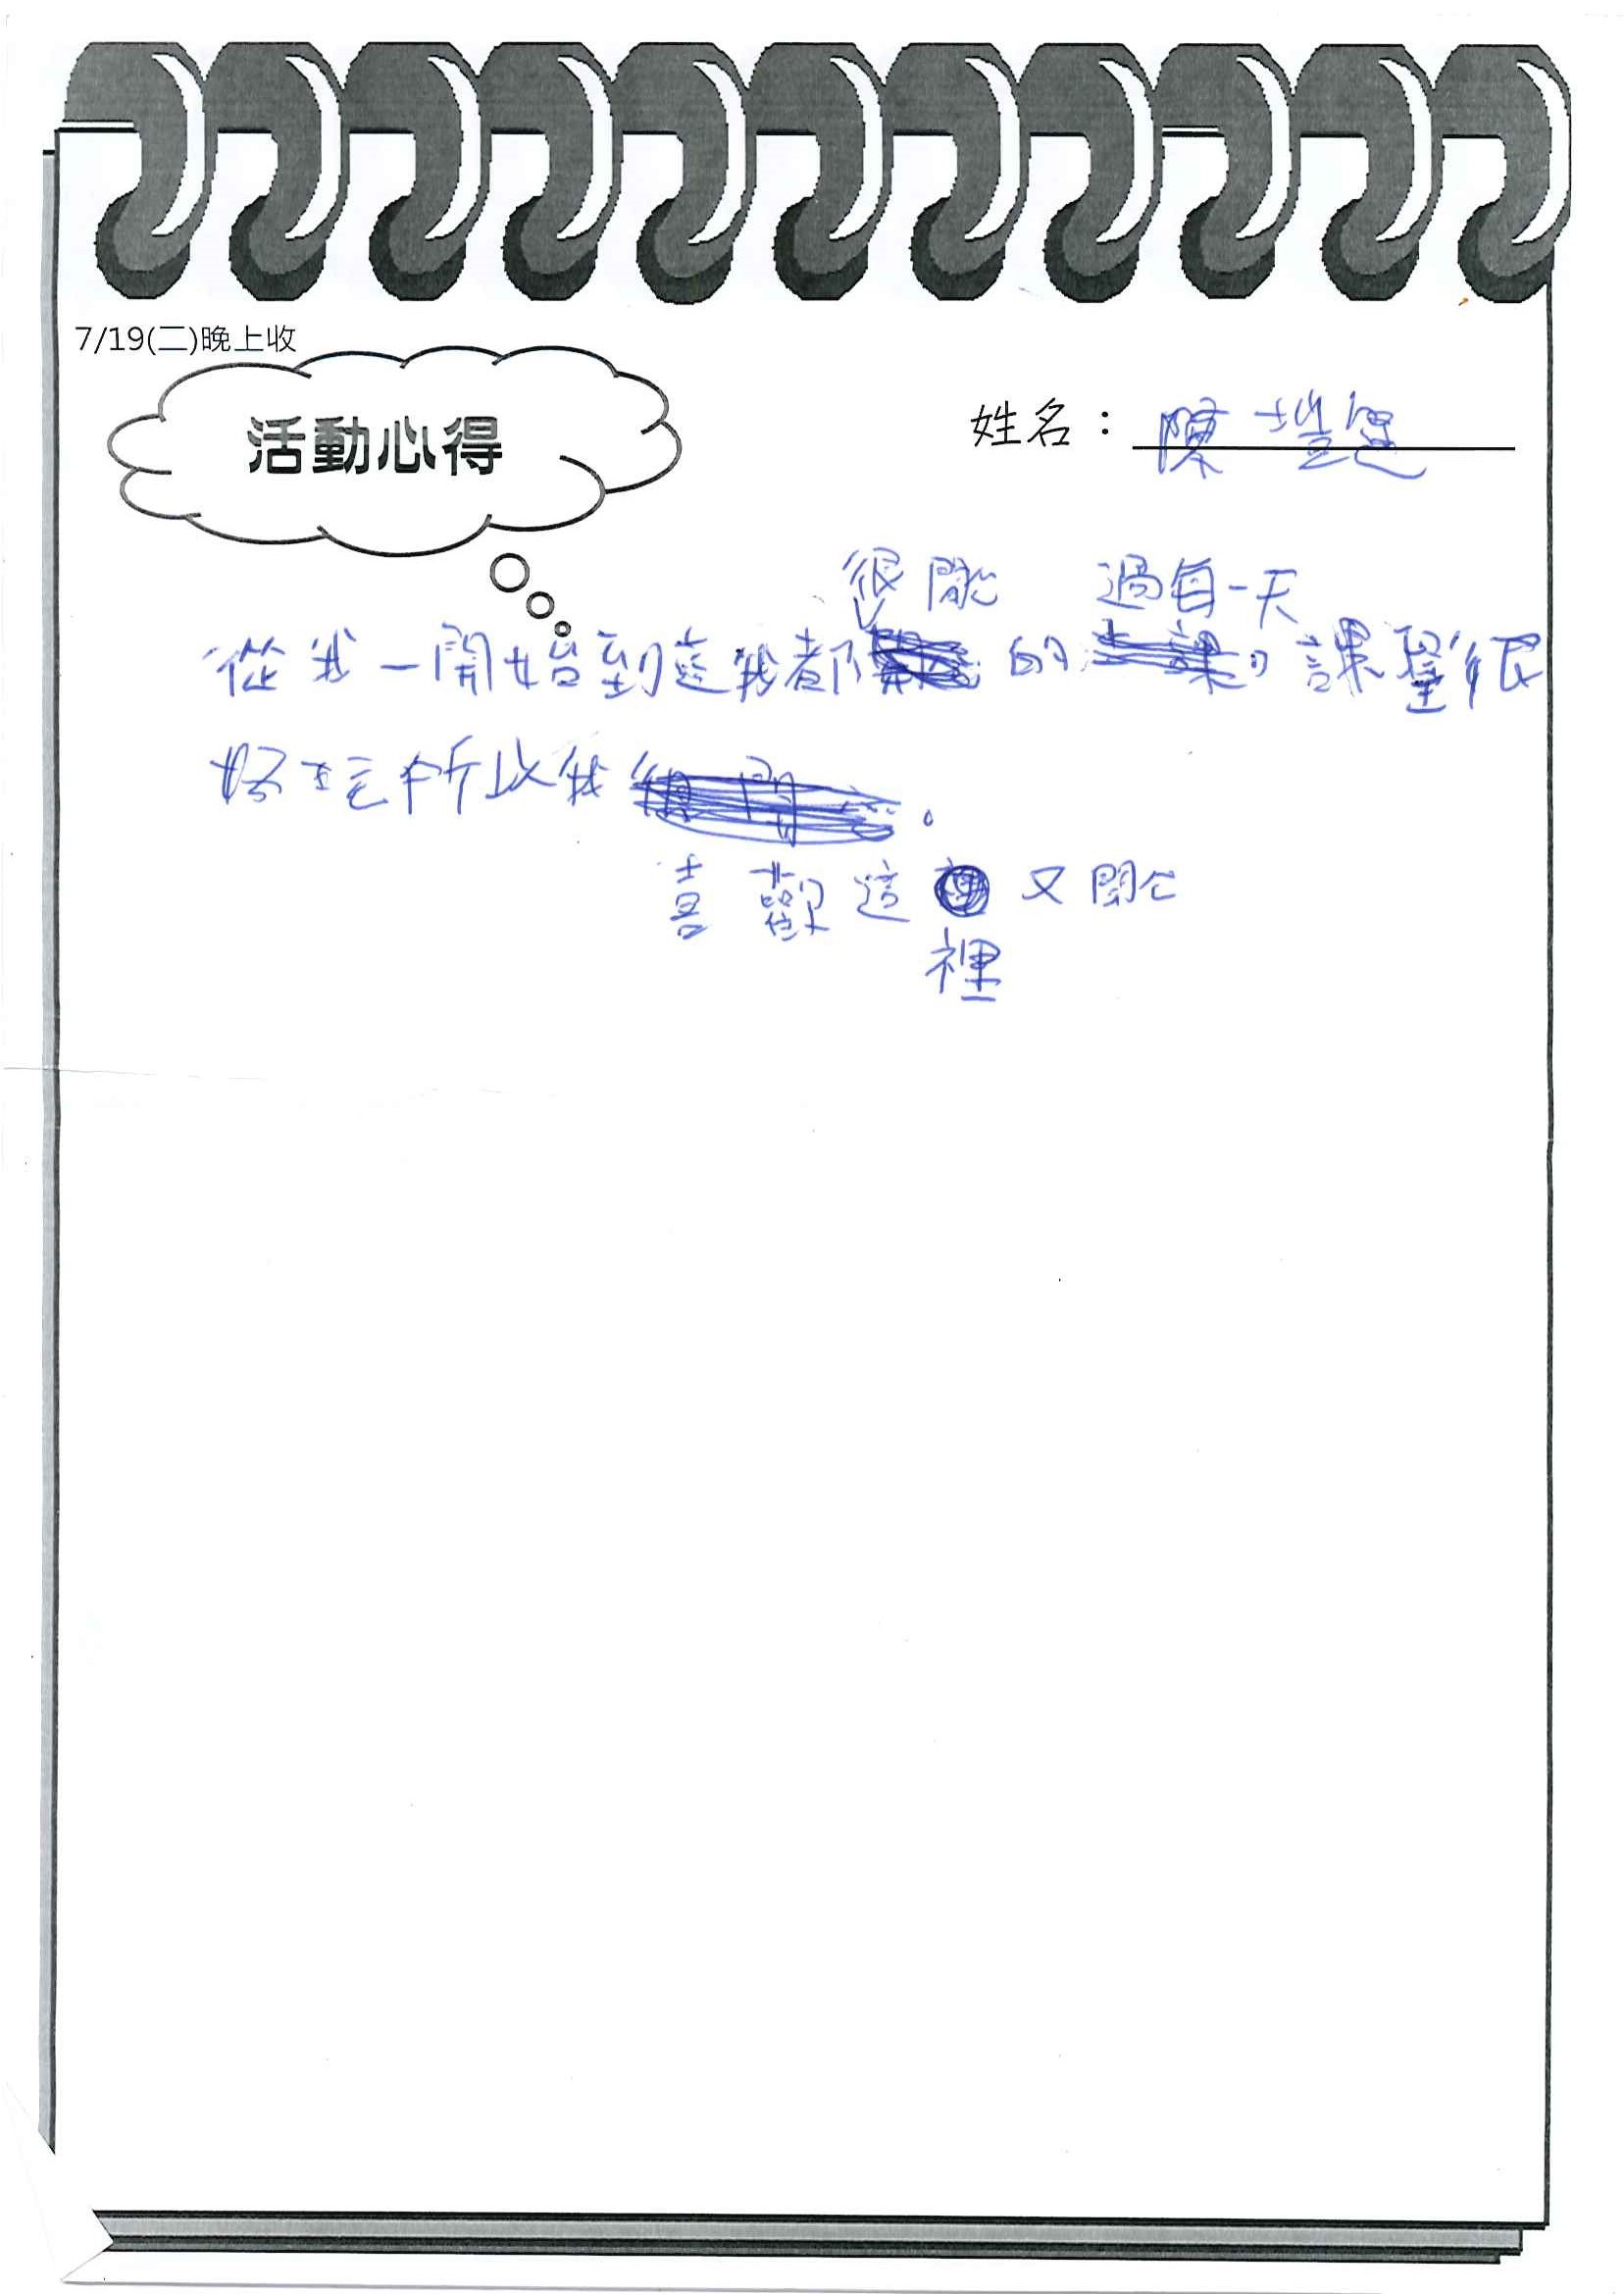 7/19(二)晚上收
活動心得
姓名：陳塏
很開心 過每一天
從我一開始到這我都 的 課 課 很
好玩所以我 。
喜歡這 又開心
裡